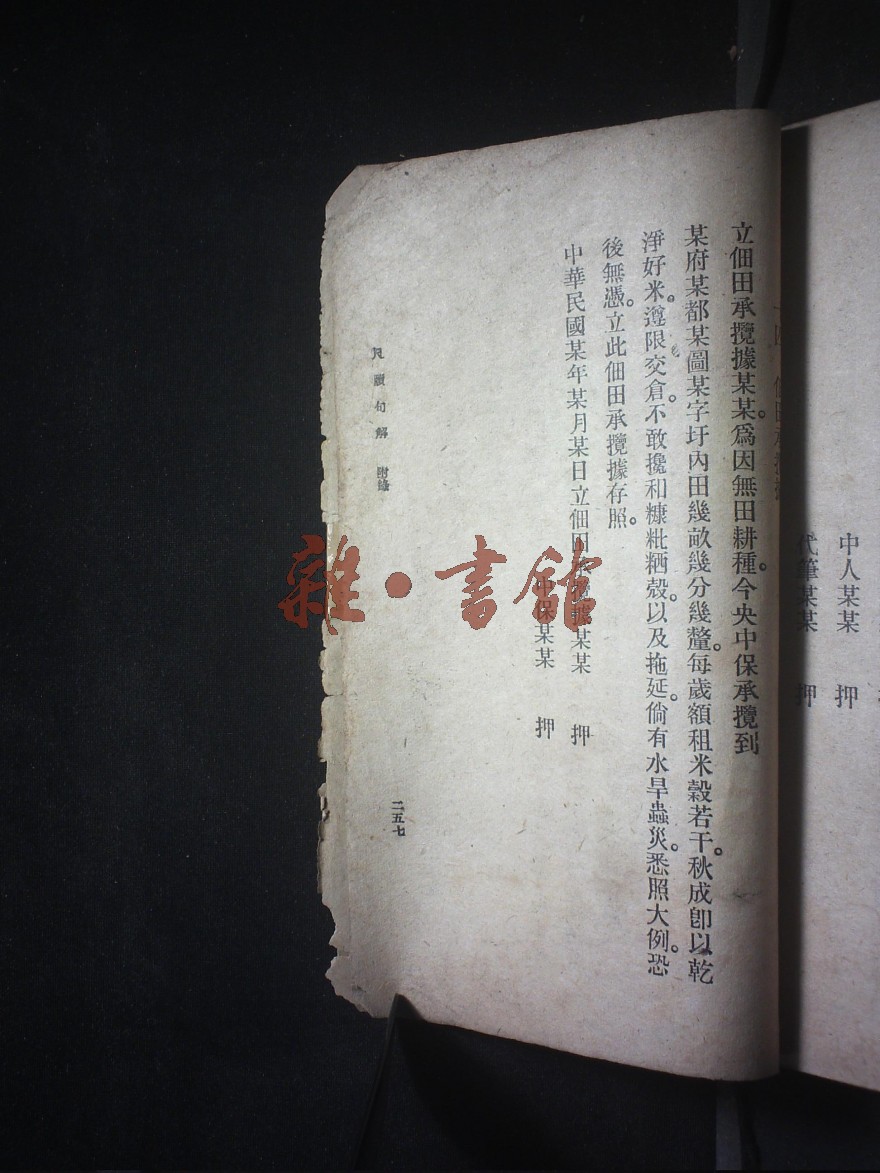 中人某某　押
代筆某某　押
立佃田承攬據某某。爲因無田耕種。今央中保承攬到
某府某都某圖某字圩內田幾畝幾分幾釐。每歲額租米穀若干。秋成卽以乾
淨好米。遵限交倉。不敢攙和糠粃粞殼。以及拖延。倘有水旱蟲災。悉照大例。恐
後無憑。立此佃田承攬據存照。
中華民國某年某月某日立佃田承攬據某某　押
中保某某　押
尺牘句解　附錄
二五七
雜·書館